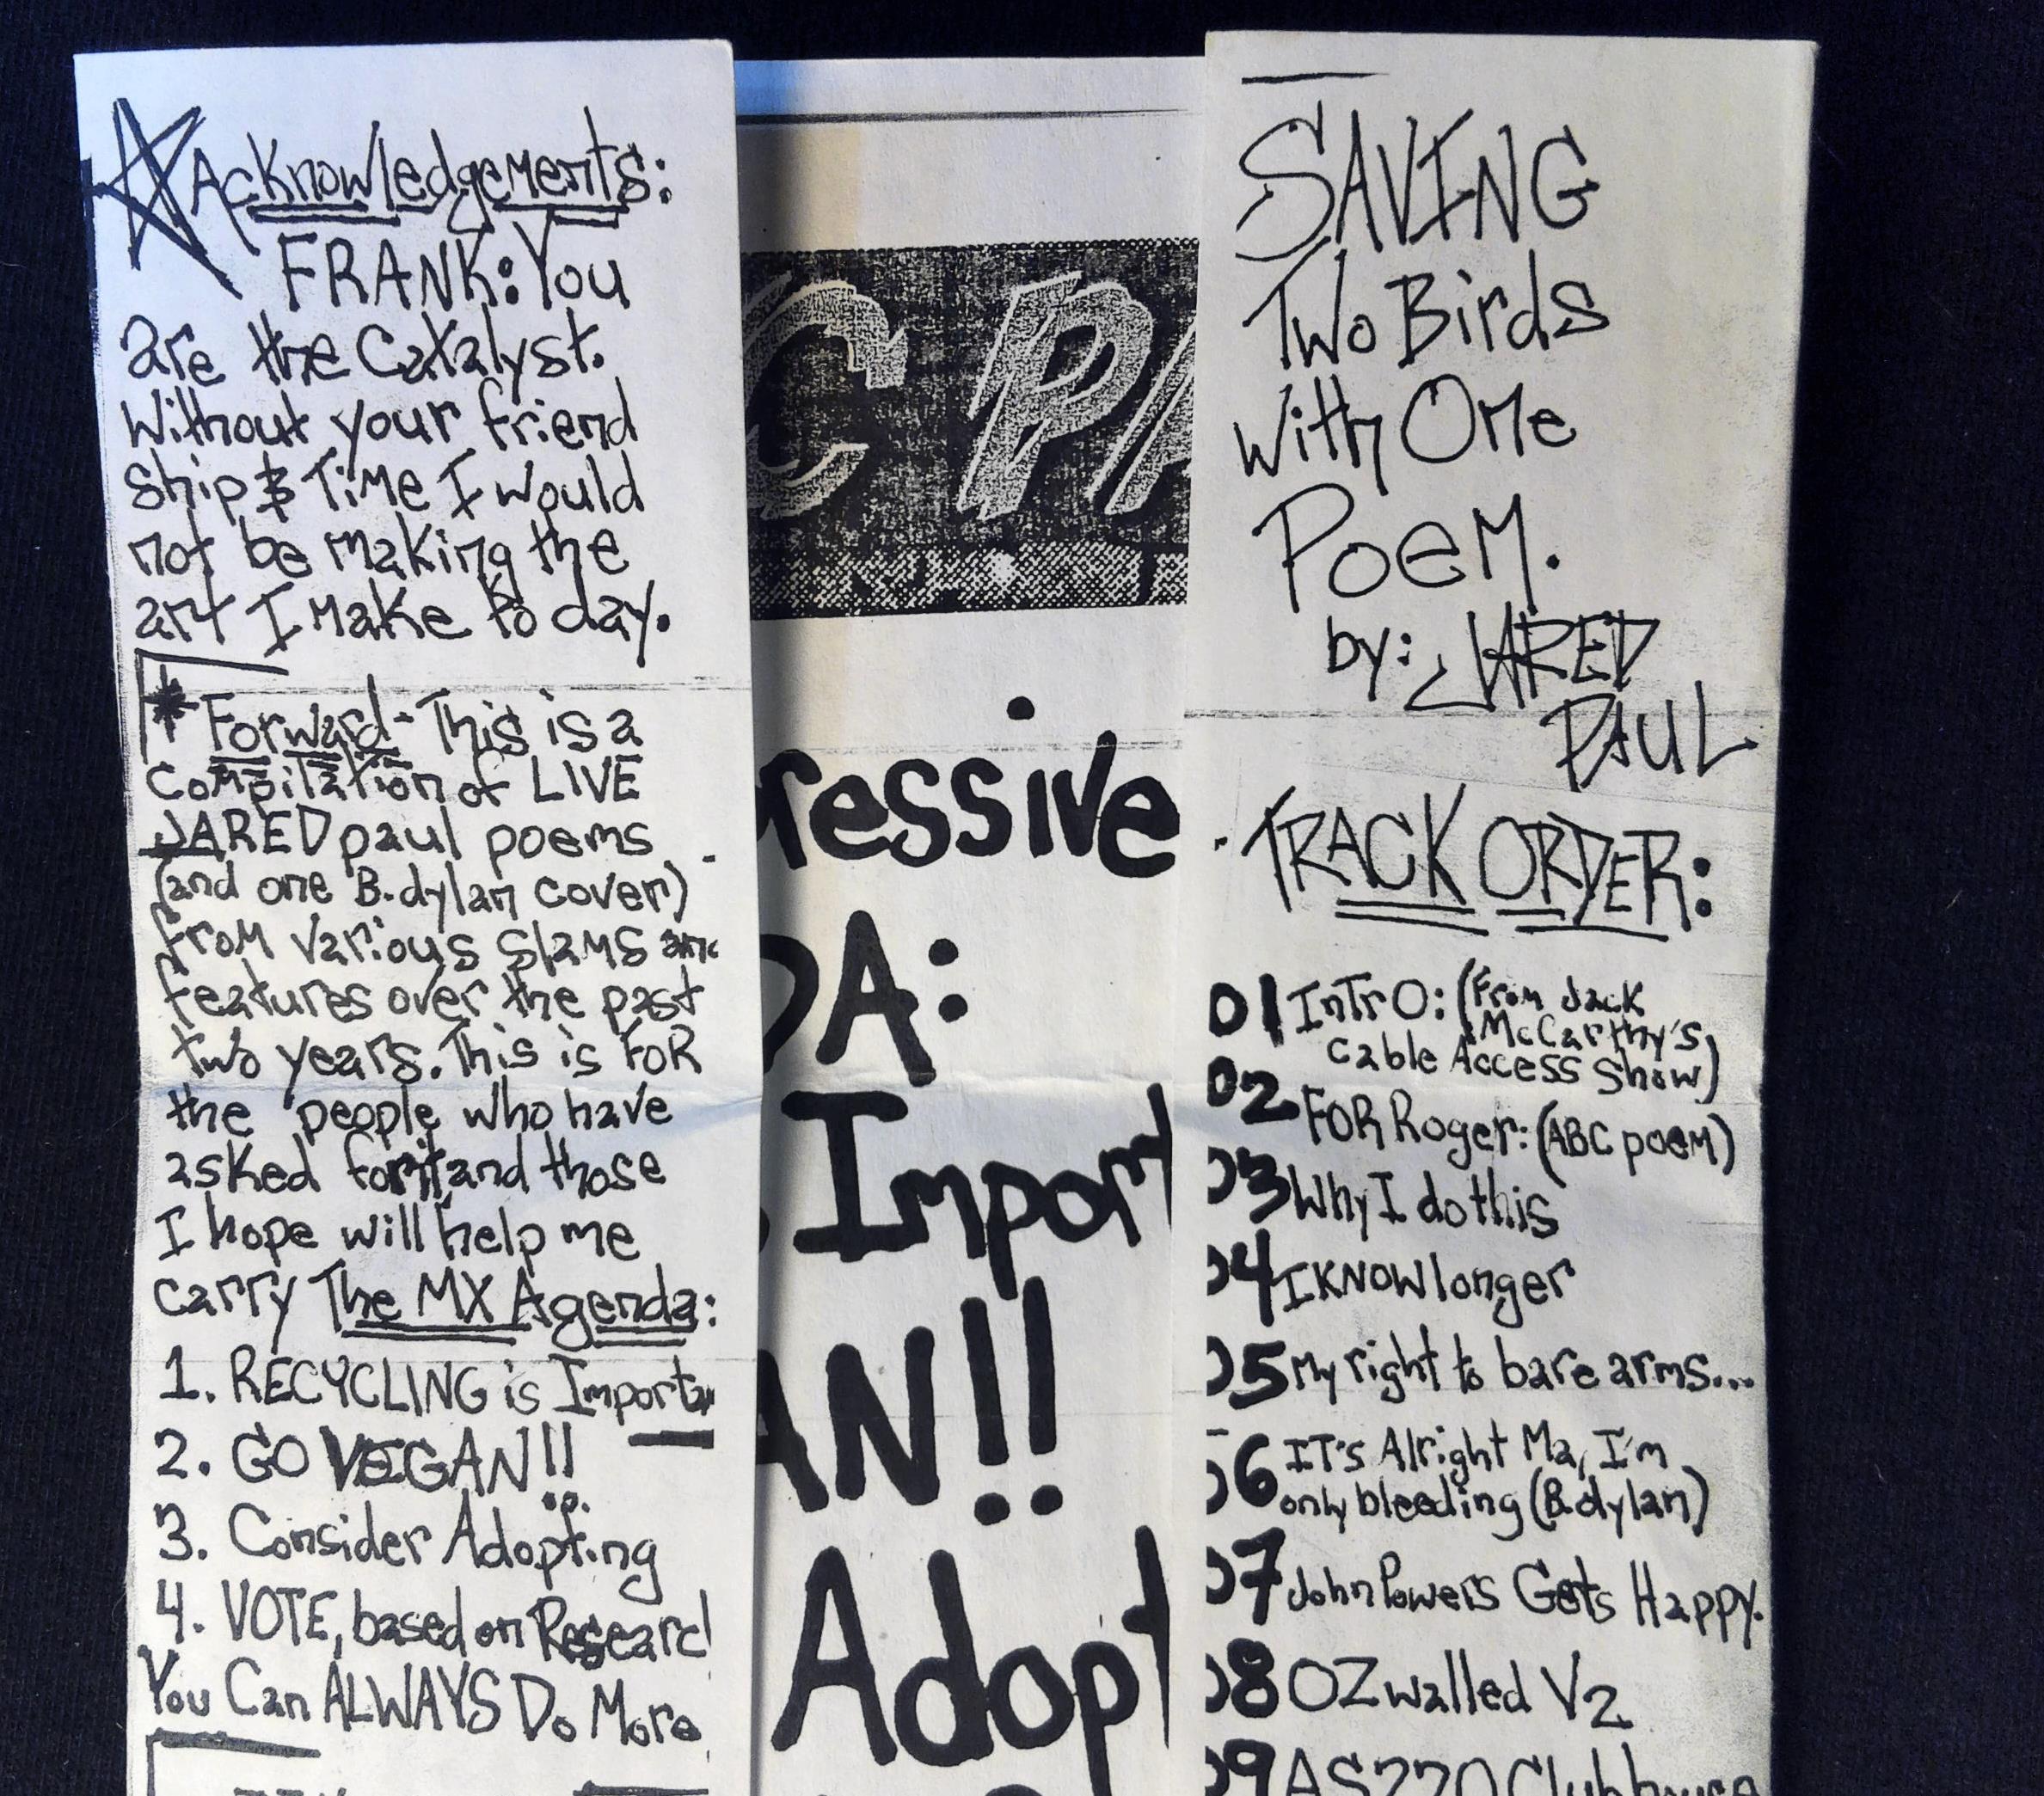 Acknowledgements:
FRANK: You
are the Catalyst.
Without your friend
ship & Time I would
not be making the
art I make to day.
* Forward - This is a
Compilation of LIVE
JARED paul poems
(and one B. dylan cover)
from various slams an
features over the past
two years. This is FOR
the people who have
asked for it and those
I hope will help me
carry The MX Agenda:
1. RECYCLING is Importa
2. GO VEGAN!!
3. Consider Adopting
4. VOTE, based on Researc
You Can ALWAYS Do More
C PA
ressive
DA:
Import
AN!!
Adopt
SAVING
Two Birds
With One
Poem.
by: JARED
PAUL
TRACK ORDER:
01 InTrO: (From Jack
McCarthy's
cable Access Show)
02 FOR Roger: (ABC poem)
03 Why I do this
04 I KNOW longer
05 My right to bare arms...
06 IT's Alright Ma, I'm
only bleeding (B. dylan)
07 John Powers Gets Happy.
08 OZ walled V2
09 AS220 Clubhouse